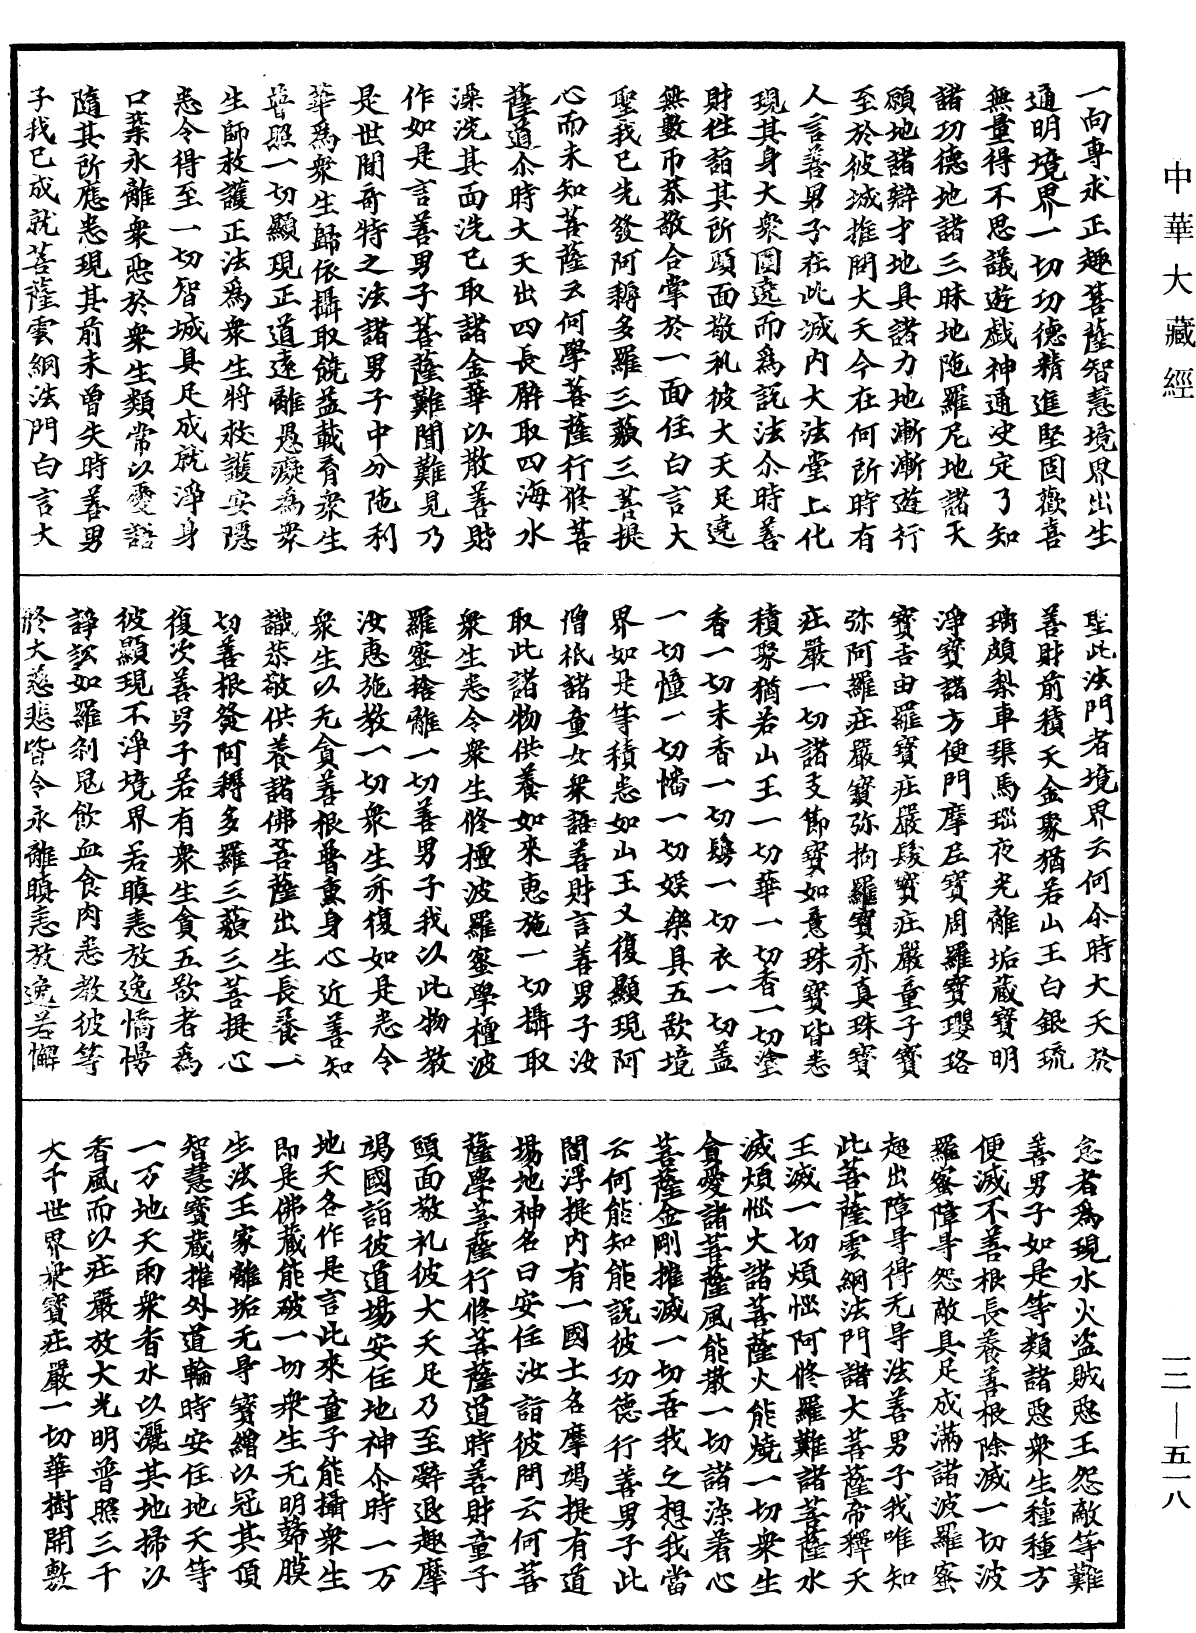 中華大藏經
一向專求正趣菩薩智慧境界出生
通明境界一切功德精進堅固歡喜
無量得不思議遊戲神通決定了知
諸功德地諸三昧地陁羅尼地諸天
願地諸辯才地具諸力地漸漸遊行
至於彼城推問大天今在何所時有
人言善男子在此城內大法堂上化
現其身大衆圍遶而爲說法尒時善
財往詣其所頭面敬礼彼大天足遶
無數帀恭敬合掌於一面住白言大
聖我已先發阿耨多羅三藐三菩提
心而未知菩薩云何學菩薩行修菩
薩道尒時大天出四長臂取四海水
澡洗其面洗已取諸金華以散善財
作如是言善男子菩薩難聞難見乃
是世間奇特之法諸男子中分陁利
華爲衆生歸依攝取饒益載育衆生
普照一切顯現正道遠離愚癡爲衆
生師救護正法爲衆生將救護安隱
悉令得至一切智城具足成就淨身
口業永離衆惡於衆生類常以愛語
隨其所應悉現其前未曾失時善男
子我已成就菩薩雲網法門白言大
聖此法門者境界云何尒時大天於
善財前積天金聚猶若山王白銀琉
璃頗梨車𤦲馬瑙夜光離垢藏寶明
淨寶諸方便門摩尼寶周羅寶瓔珞
寶吉由羅寶莊嚴髮寶莊嚴童子寶
弥阿羅莊嚴寶弥拘羅寶赤真珠寶
莊嚴一切諸支節寶如意珠寶皆悉
積聚猶若山王一切華一切香一切塗
香一切末香一切鬘一切衣一切蓋
一切幢一切幡一切娛樂具五欲境
界如是等積悉如山王又復顯現阿
僧祇諸童女衆語善財言善男子汝
取此諸物供養如來惠施一切攝取
衆生悉令衆生修檀波羅蜜學檀波
羅蜜捨離一切善男子我以此物教
汝惠施教一切衆生亦復如是悉令
衆生以无貪善根普熏身心近善知
識恭敬供養諸佛菩薩出生長養一
切善根發阿耨多羅三藐三菩提心
復次善男子若有衆生貪五欲者爲
彼顯現不淨境界若瞋恚放逸憍慢
諍訟如羅剎鬼飲血食肉悉教彼等
於大慈悲皆令永離瞋恚放逸若懈
怠者爲現水火盜賊惡王怨敵等難
善男子如是等類諸惡衆生種種方
便滅不善根長養善根除滅一切波
羅蜜障㝵怨敵具足成滿諸波羅蜜
超出障㝵得无㝵法善男子我唯知
此菩薩雲網法門諸大菩薩帝釋天
王滅一切煩惱阿修羅難諸菩薩水
滅煩惱火諸菩薩火能燒一切衆生
貪愛諸菩薩風能散一切諸染著心
菩薩金剛摧滅一切吾我之想我當
云何能知能說彼功德行善男子此
閻浮提內有一國土名摩竭提有道
場地神名曰安住汝詣彼問云何菩
薩學菩薩行修菩薩道時善財童子
頭面敬礼彼大天足乃至辭退趣摩
竭國詣彼道場安住地神尒時一万
地天各作是言此來童子能攝衆生
即是佛藏能破一切衆生无明𦿔膜
生法王家離垢无㝵寶繒以冠其頂
智慧寶藏摧外道輪時安住地天等
一万地天雨衆香水以灑其地掃以
香風而以莊嚴放大光明普照三千
大千世界衆寶莊嚴一切華樹開敷
一二—五一八